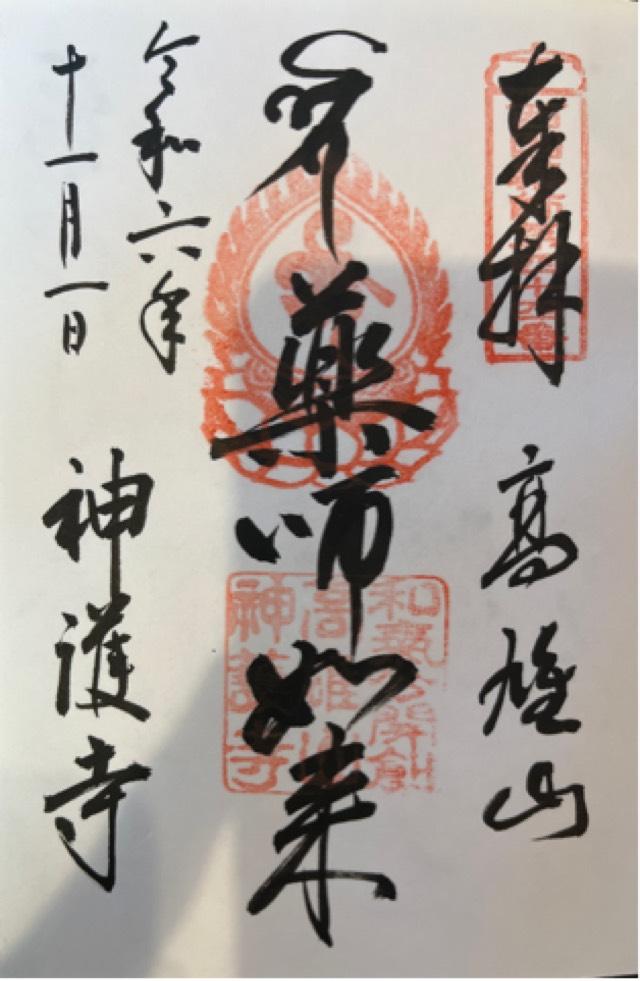 奉拝
高雄山
薬師如来
令和六年
十一月一日
神護寺
和氣公開創
高雄山
神護寺